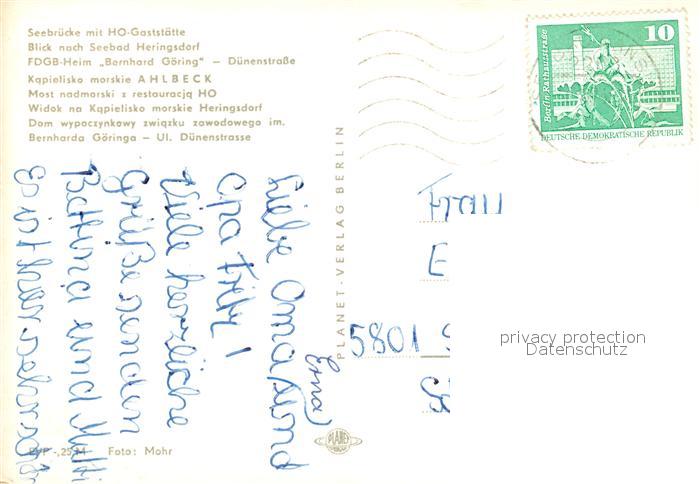 Seebrücke mit HO-Gaststätte
Blick nach Seebad Heringsdorf
FDGB-Heim „Bernhard Göring“ – Dünenstraße
Kąpielisko morskie AHLBECK
Most nadmorski z restauracją HO
Widok na Kąpielisko morskie Heringsdorf
Dom wypoczynkowy związku zawodowego im.
Bernharda Göringa – Ul. Dünenstrasse
Liebe Oma (Erna) und
Opa Fritz!
Viele herzliche
Grüße senden
Bettina und Mutti
Es ist hier sehr schön
EVP -,25 M Foto: Mohr
PLANET-VERLAG BERLIN
PLANET
10
Berlin, Rathausstraße
DEUTSCHE DEMOKRATISCHE REPUBLIK
Frau
E
5801
privacy protection
Datenschutz